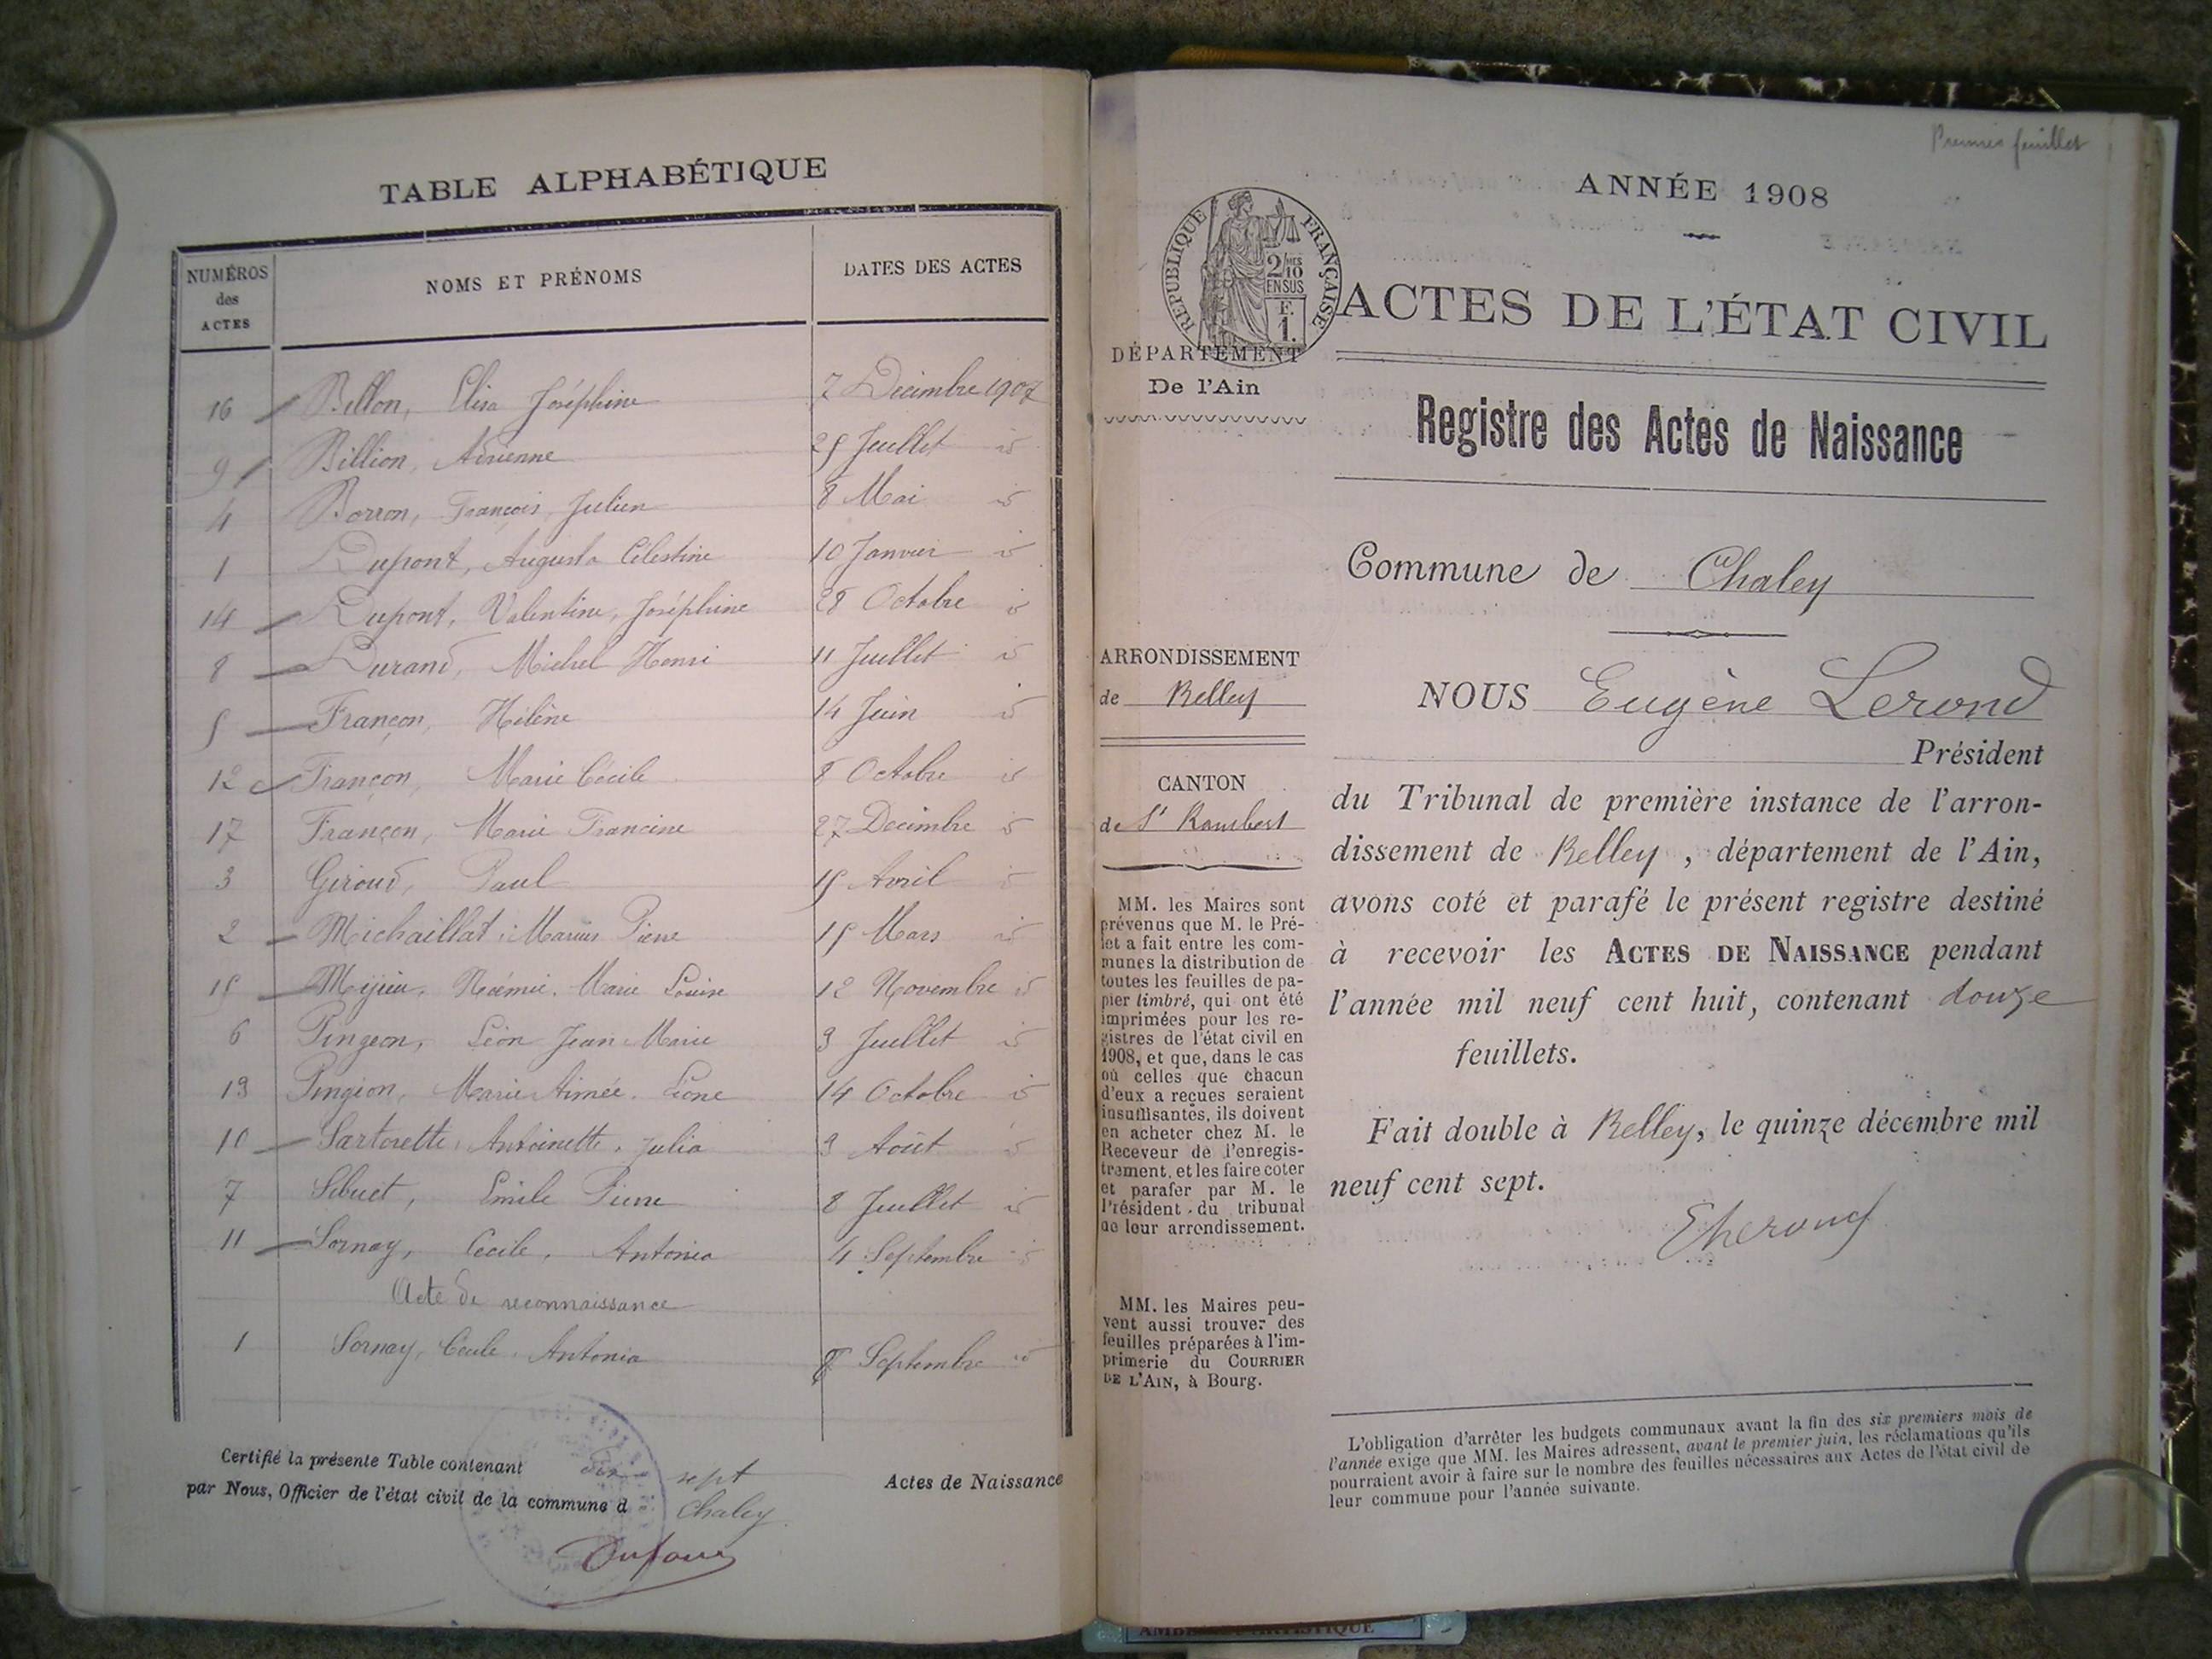 TABLE ALPHABÉTIQUE
NUMÉROS des ACTES NOMS ET PRÉNOMS DATES DES ACTES
16 Bellon, Elisa Joséphine 7 Décembre 1907
9 Billion, Adrienne 25 Juillet id
4 Borron, François, Julien 8 Mai id
1 Dupont, Augusta Célestine 10 Janvier id
14 Dupont, Valentine, Joséphine 28 Octobre id
8 Durand, Michel Henri 11 Juillet id
5 Françon, Hélène 14 Juin id
12 Françon, Marie Cécile 8 Octobre id
17 Françon, Marie Francine 27 Décembre id
3 Giroud, Paul 15 Avril id
2 Michaillat, Marius Pierre 15 Mars id
15 Noémie, Marie Louise 12 Novembre id
6 Pingeon, Léon Jean Marie 3 Juillet id
13 Pingeon, Marie Aimée, Léone 14 Octobre id
10 Sartorette, Antoinette, Julia 3 Août id
7 Sibuet, Emile Pierre 8 Juillet id
11 Sornay, Cécile, Antonia 4 Septembre id
Acte de reconnaissance
1 Sornay, Cécile, Antonia 8 Septembre id
Certifié la présente Table contenant dix sept Actes de Naissance
par Nous, Officier de l'état civil de la commune d Chaley
Premier feuillet
ANNÉE 1908
RÉPUBLIQUE FRANÇAISE
2/10MES
EN SUS
F.
1.
ACTES DE L'ÉTAT CIVIL
DÉPARTEMENT
De l'Ain
Registre des Actes de Naissance
Commune de Chaley
ARRONDISSEMENT
de Belley
CANTON
de St Rambert
MM. les Maires sont
prévenus que M. le Pré-
fet a fait entre les com-
munes la distribution de
toutes les feuilles de pa-
pier timbré, qui ont été
imprimées pour les re-
gistres de l'état civil en
1908, et que, dans le cas
où celles que chacun
d'eux a reçues seraient
insuffisantes, ils doivent
en acheter chez M. le
Receveur de l'enregis-
trement, et les faire coter
et parafer par M. le
Président du tribunal
de leur arrondissement.
MM. les Maires peu-
vent aussi trouver des
feuilles préparées à l'im-
primerie du COURRIER
DE L'AIN, à Bourg.
NOUS Eugène Lerond
Président
du Tribunal de première instance de l'arron-
dissement de Belley, département de l'Ain,
avons coté et parafé le présent registre destiné
à recevoir les ACTES DE NAISSANCE pendant
l'année mil neuf cent huit, contenant douze
feuillets.
Fait double à Belley, le quinze décembre mil
neuf cent sept.
L'obligation d'arrêter les budgets communaux avant la fin des six premiers mois de
l'année exige que MM. les Maires adressent, avant le premier juin, les réclamations qu'ils
pourraient avoir à faire sur le nombre des feuilles nécessaires aux Actes de l'état civil de
leur commune pour l'année suivante.